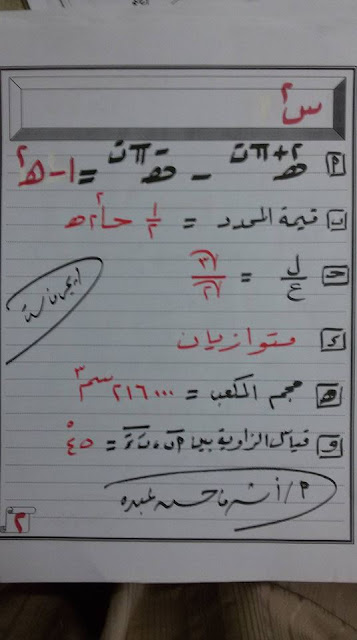 س٢
أ هـ^(٢+πت) - هـ^(-πت) = ١ - هـ^٢
ب قيمة المحدد = ١/٢ حا٢ ٢هـ
ج ل/ع = √٣/√٢
د متوازيان
هـ حجم المكعب = ٢١٦٠٠٠ سم٣
و قياس الزاوية بين = ٤٥°
م/أشرف حسن عبده
٢